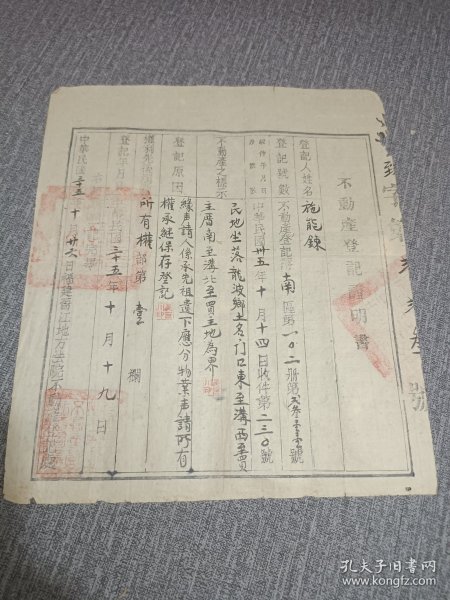 不動産登記證明書
登記人姓名 施能鍊
登記號數 不動產登記 南區第一〇二冊第 號
收件年月日 中華民國卅五年十月十四日收件第二三〇號
不動產之標示 民地坐落龍波鄉土名門口東至溝西至買
主厝南至溝北至買主地為界
登記原因 緣聲請人係承先祖遺下應分物業聲請所有
權承繼保存登記
權利先後欄 所有權部第壹欄
登記年月日 中華民國三十五年十月十九日
中華民國三十五年十月廿六日福建晋江地方法院不動產登記處
號
孔夫子旧书网
www.kongfz.com